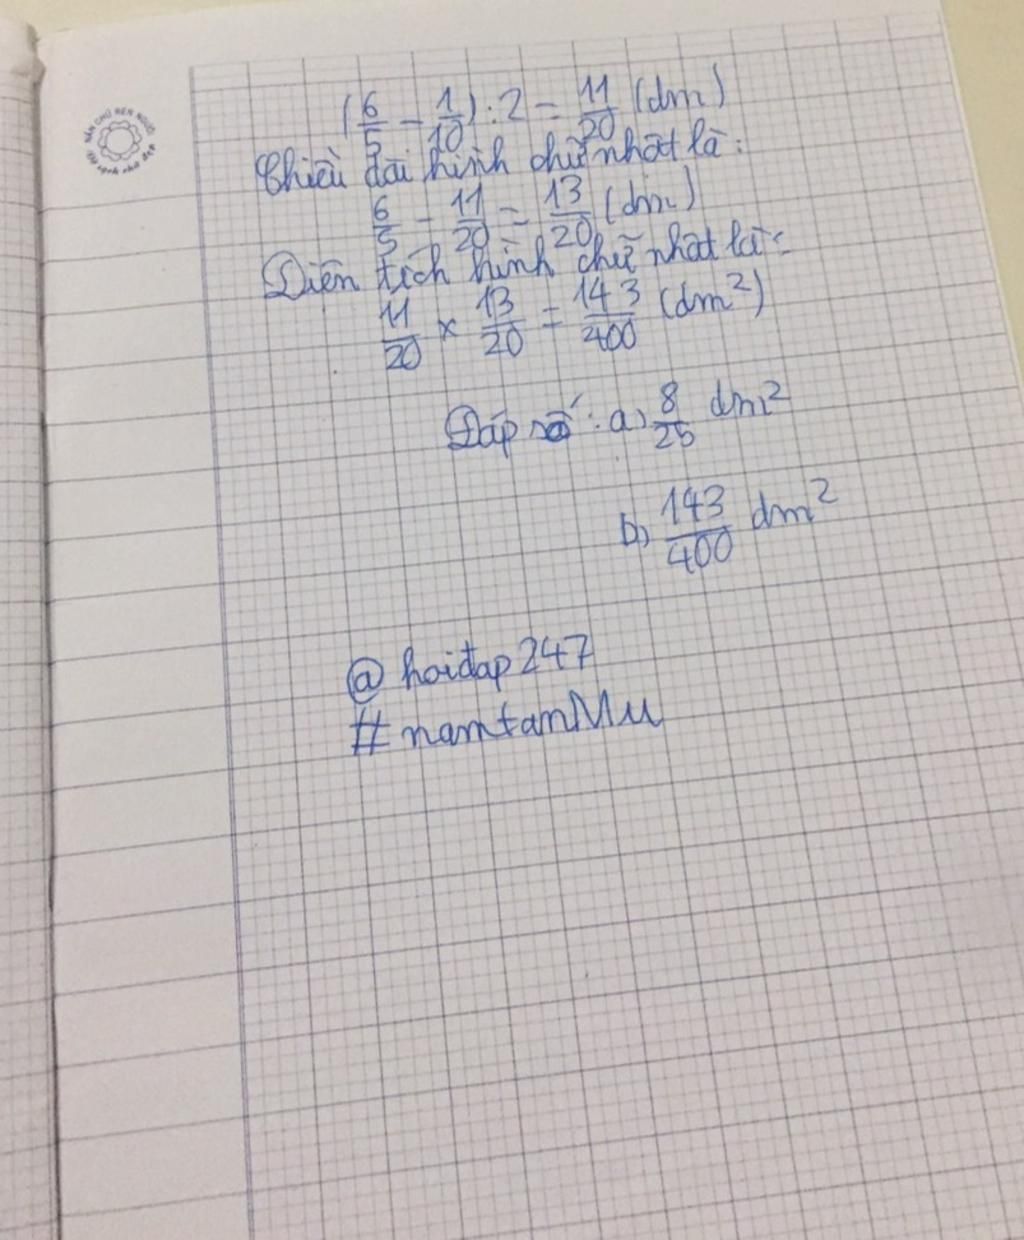 NẮN CHỮ RÈN NGƯỜI
Vở sạch chữ đẹp
(6/5 - 1/10) : 2 = 11/20 (dm)
Chiều dài hình chữ nhật là:
6/5 - 11/20 = 13/20 (dm)
Diện tích hình chữ nhật là:
11/20 x 13/20 = 143/400 (dm²)
Đáp số: a) 8/25 dm²
b) 143/400 dm²
@ hoiđap247
# namtamMu